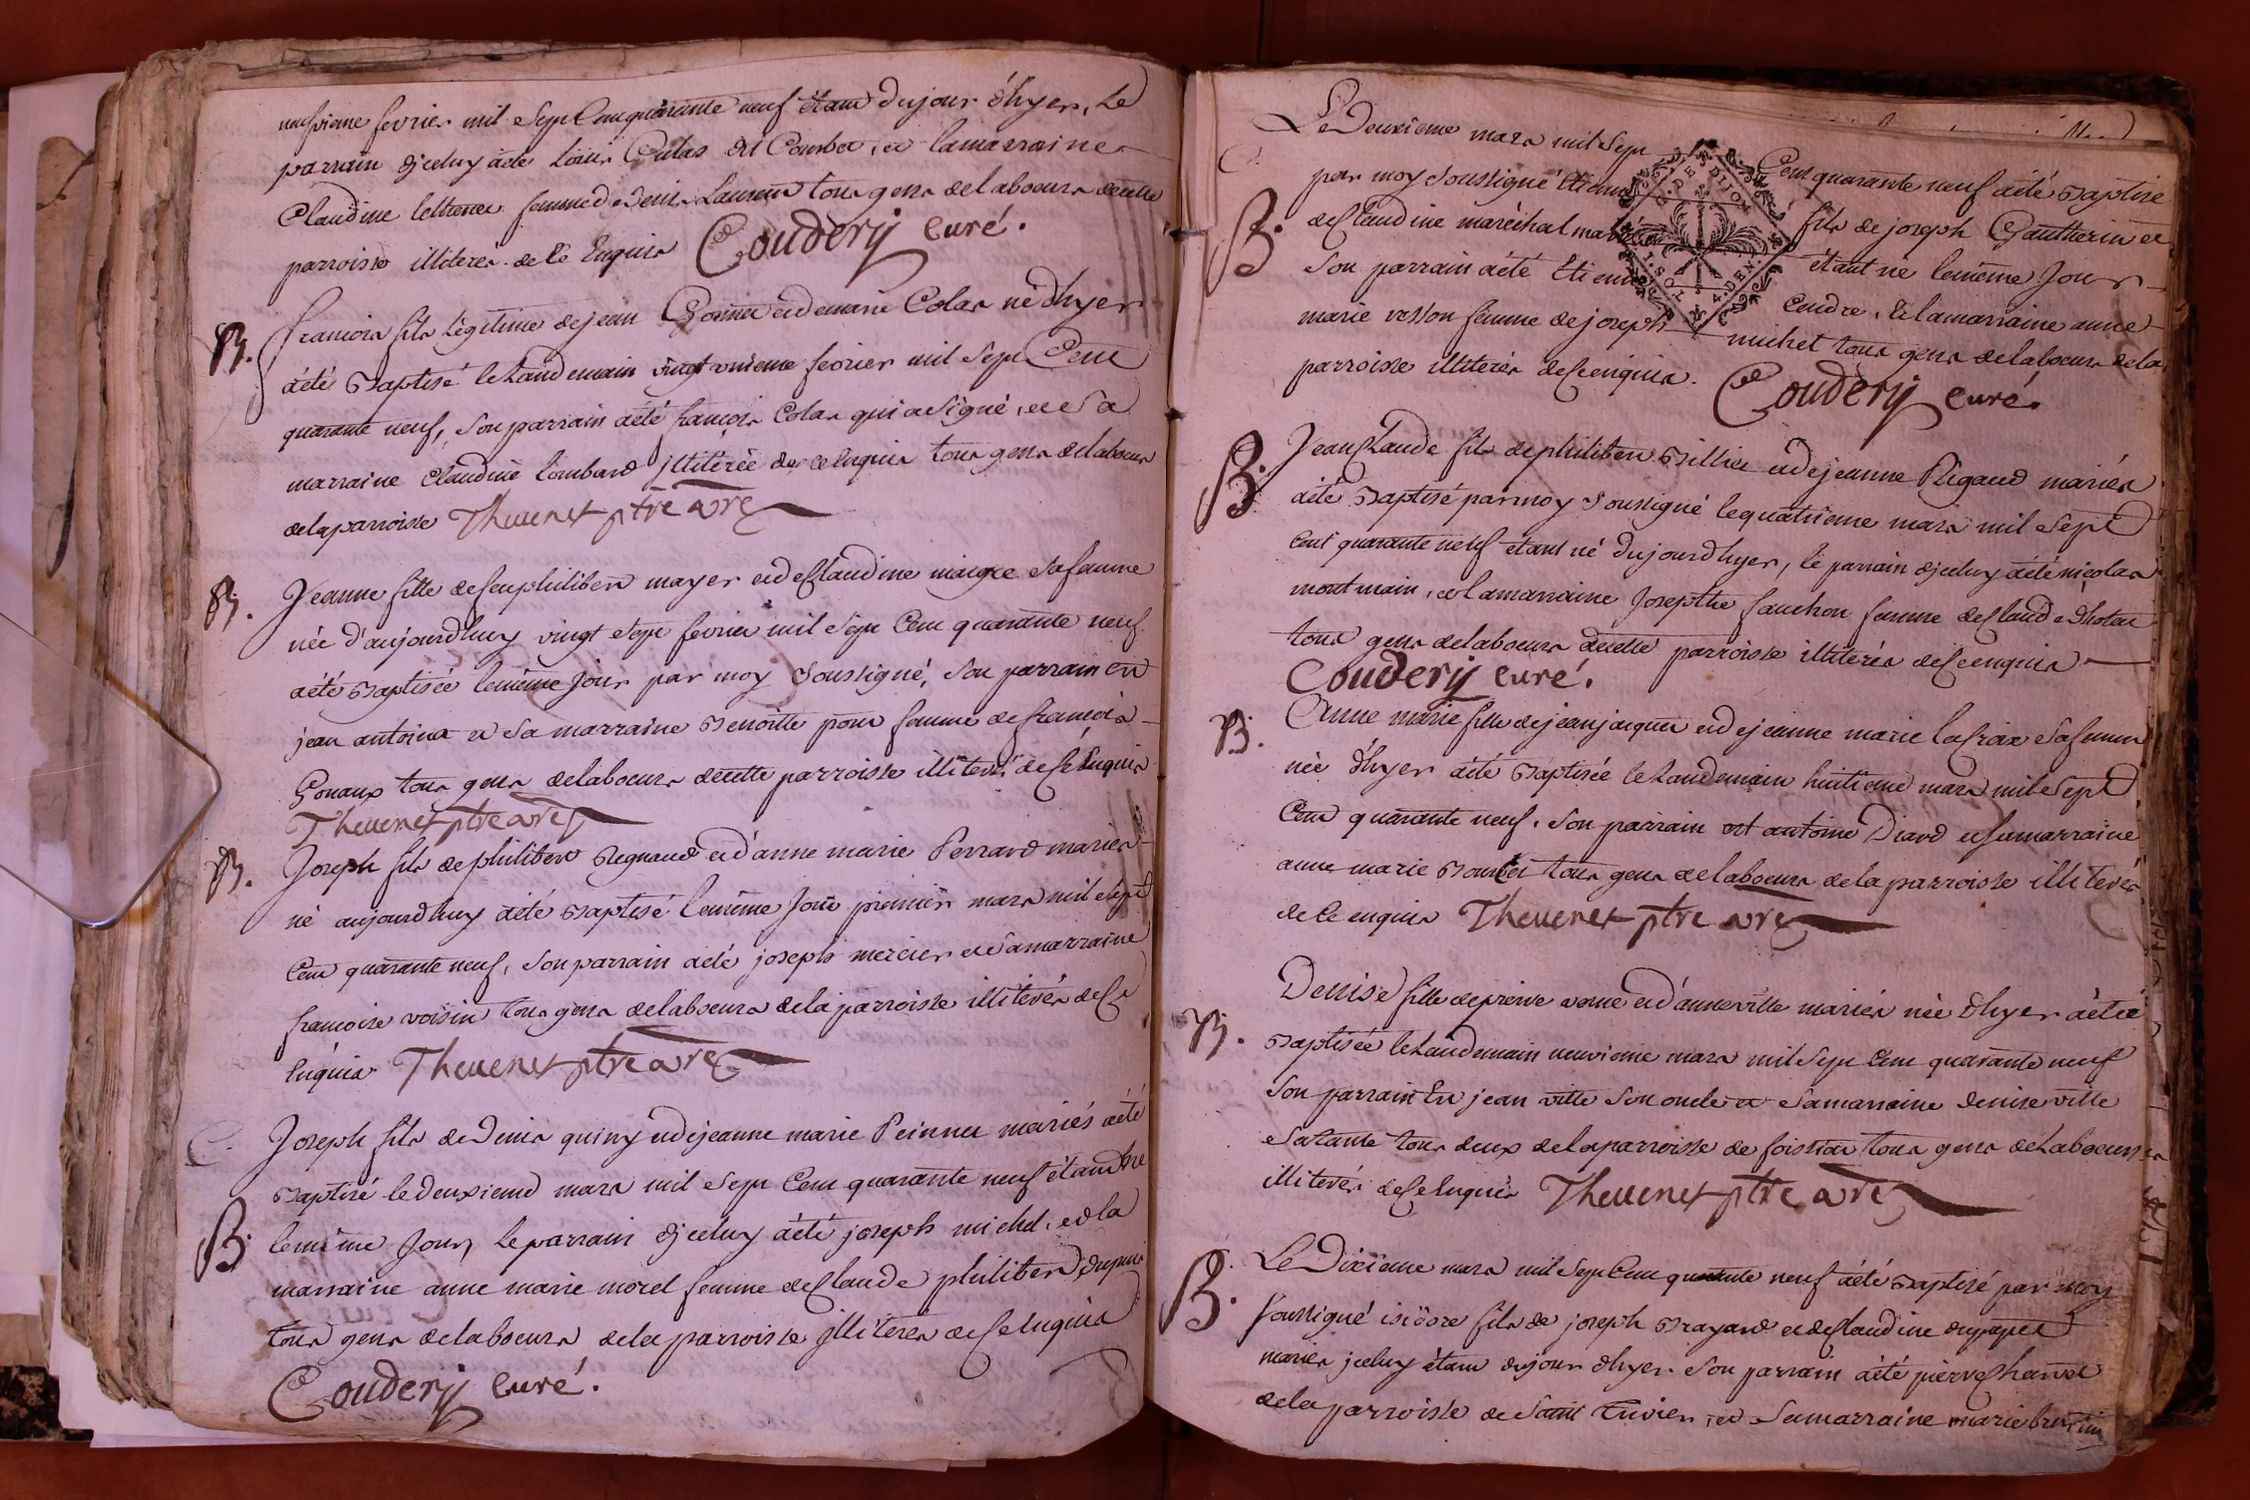 neufvieme fevrier mil sept Cent quarante neuf étant du jour d'hyer, Le
parrain d'jceluy a été Loüis Culas dit Courbet, et la marraine
Claudine femme de denis Laurent tous gens de laboeurs de cette
parroisse illiterés de ce Enquis Coudery Curé.
B. francois fils légitime de jean et de marie Colas né d'hyer
a été Baptisé le Landemain vingt unieme fevrier mil sept Cent
quarante neuf, Son parrain a été francois Colas qui a Signé, et Sa
marraine Claudine Lombard jlliterée de ce Enquis tous gens de laboeur
de la parroisse Theuenet ptre
B. Jeanne fille de feu philibert mayer et de Claudine maigre Sa femme
née d'aujourdhuy vingt Sept fevrier mil Sept Cent quarante neuf
a été Baptisée le même Jour par moy Soussigné, Son parrain est
jean antoinat et Sa marraine Benoitte pour femme de francois
Gonaux tous gens de labeurs de cette parroisse illiterés de Ce Enquis
Theuenet ptre
B. Joseph fils de philibert Regnaud et d'anne marie Perrard mariés
né aujourdhuy a été Baptisé le même Jour premier mars mil Sept
Cent quarante neuf, Son parrain a été joseph mercier et Sa marraine
francoise voisin tous gens de labseurs de la parroisse illiterés de Ce
Enquis Theuenet ptre
C. Joseph fils de Denis quiny et de jeanne marie Peinnet mariés a été
Baptisé le deuxieme mars mil Sept Cent quarante neuf étant né
B. le même Jour, Le parrain d'jceluy a été joseph michel, et la
marraine anne marie morel femme de Claude philibert
tous gens de labseurs de la parroisse jlliterés de Ce Enquis
Coudery Curé.
Le Deuxieme mars mil Sept Cent quarante neuf a été Baptisé
par moy Soussigné Etienne fils de joseph Gautherin et
B. de Claudine maréchal mariés étant né le même Jour
Son parrain a été Etienne Cendre, et la marraine anne
marie vesson femme de joseph michel tous gens de labseurs de la
parroisse illiterés de Ce enquis. Coudery Curé.
B. Jean Claude fils de philibert Billier et de jeanne Rigaud mariés
a été Baptisé par moy Soussigné le quatrieme mars mil Sept
Cent quarante neuf étant né du jour d'hyer, le parrain d'jceluy a été nicolas
montmain, et la marraine Josepthe fauchon femme de Claude
tous gens de labseurs de cette parroisse illiterés de Ce enquis
Coudery Curé.
B. Anne marie fille de jean jacques et de jeanne marie lacroix Sa femme
née d'hyer a été Baptisée le Landemain huitieme mars mil Sept
Cent quarante neuf. Son parrain est antoine Diard et Sa marraine
anne marie tous gens de labseurs de la parroisse illiterés
de Ce enquis Theuenet ptre
Denise fille de pierre et d'anne ville mariés née d'hyer a été
B. Baptisée le Landemain neuvieme mars mil Sept Cent quarante neuf
Son parrain Est jean ville Son oncle et Sa marraine denise ville
Sa tante tous deux de la parroisse de tous gens de Labseurs
illiterés de Ce Enquis Theuenet ptre
Le Dixieme mars mil Sept Cent quarante neuf a été Baptisé par moy
B. Soussigné isidore fils de joseph Brayard et de Claudine
mariés jceluy étant du jour d'hyer. Son parrain a été pierre
de la parroisse de Saint et Sa marraine marie